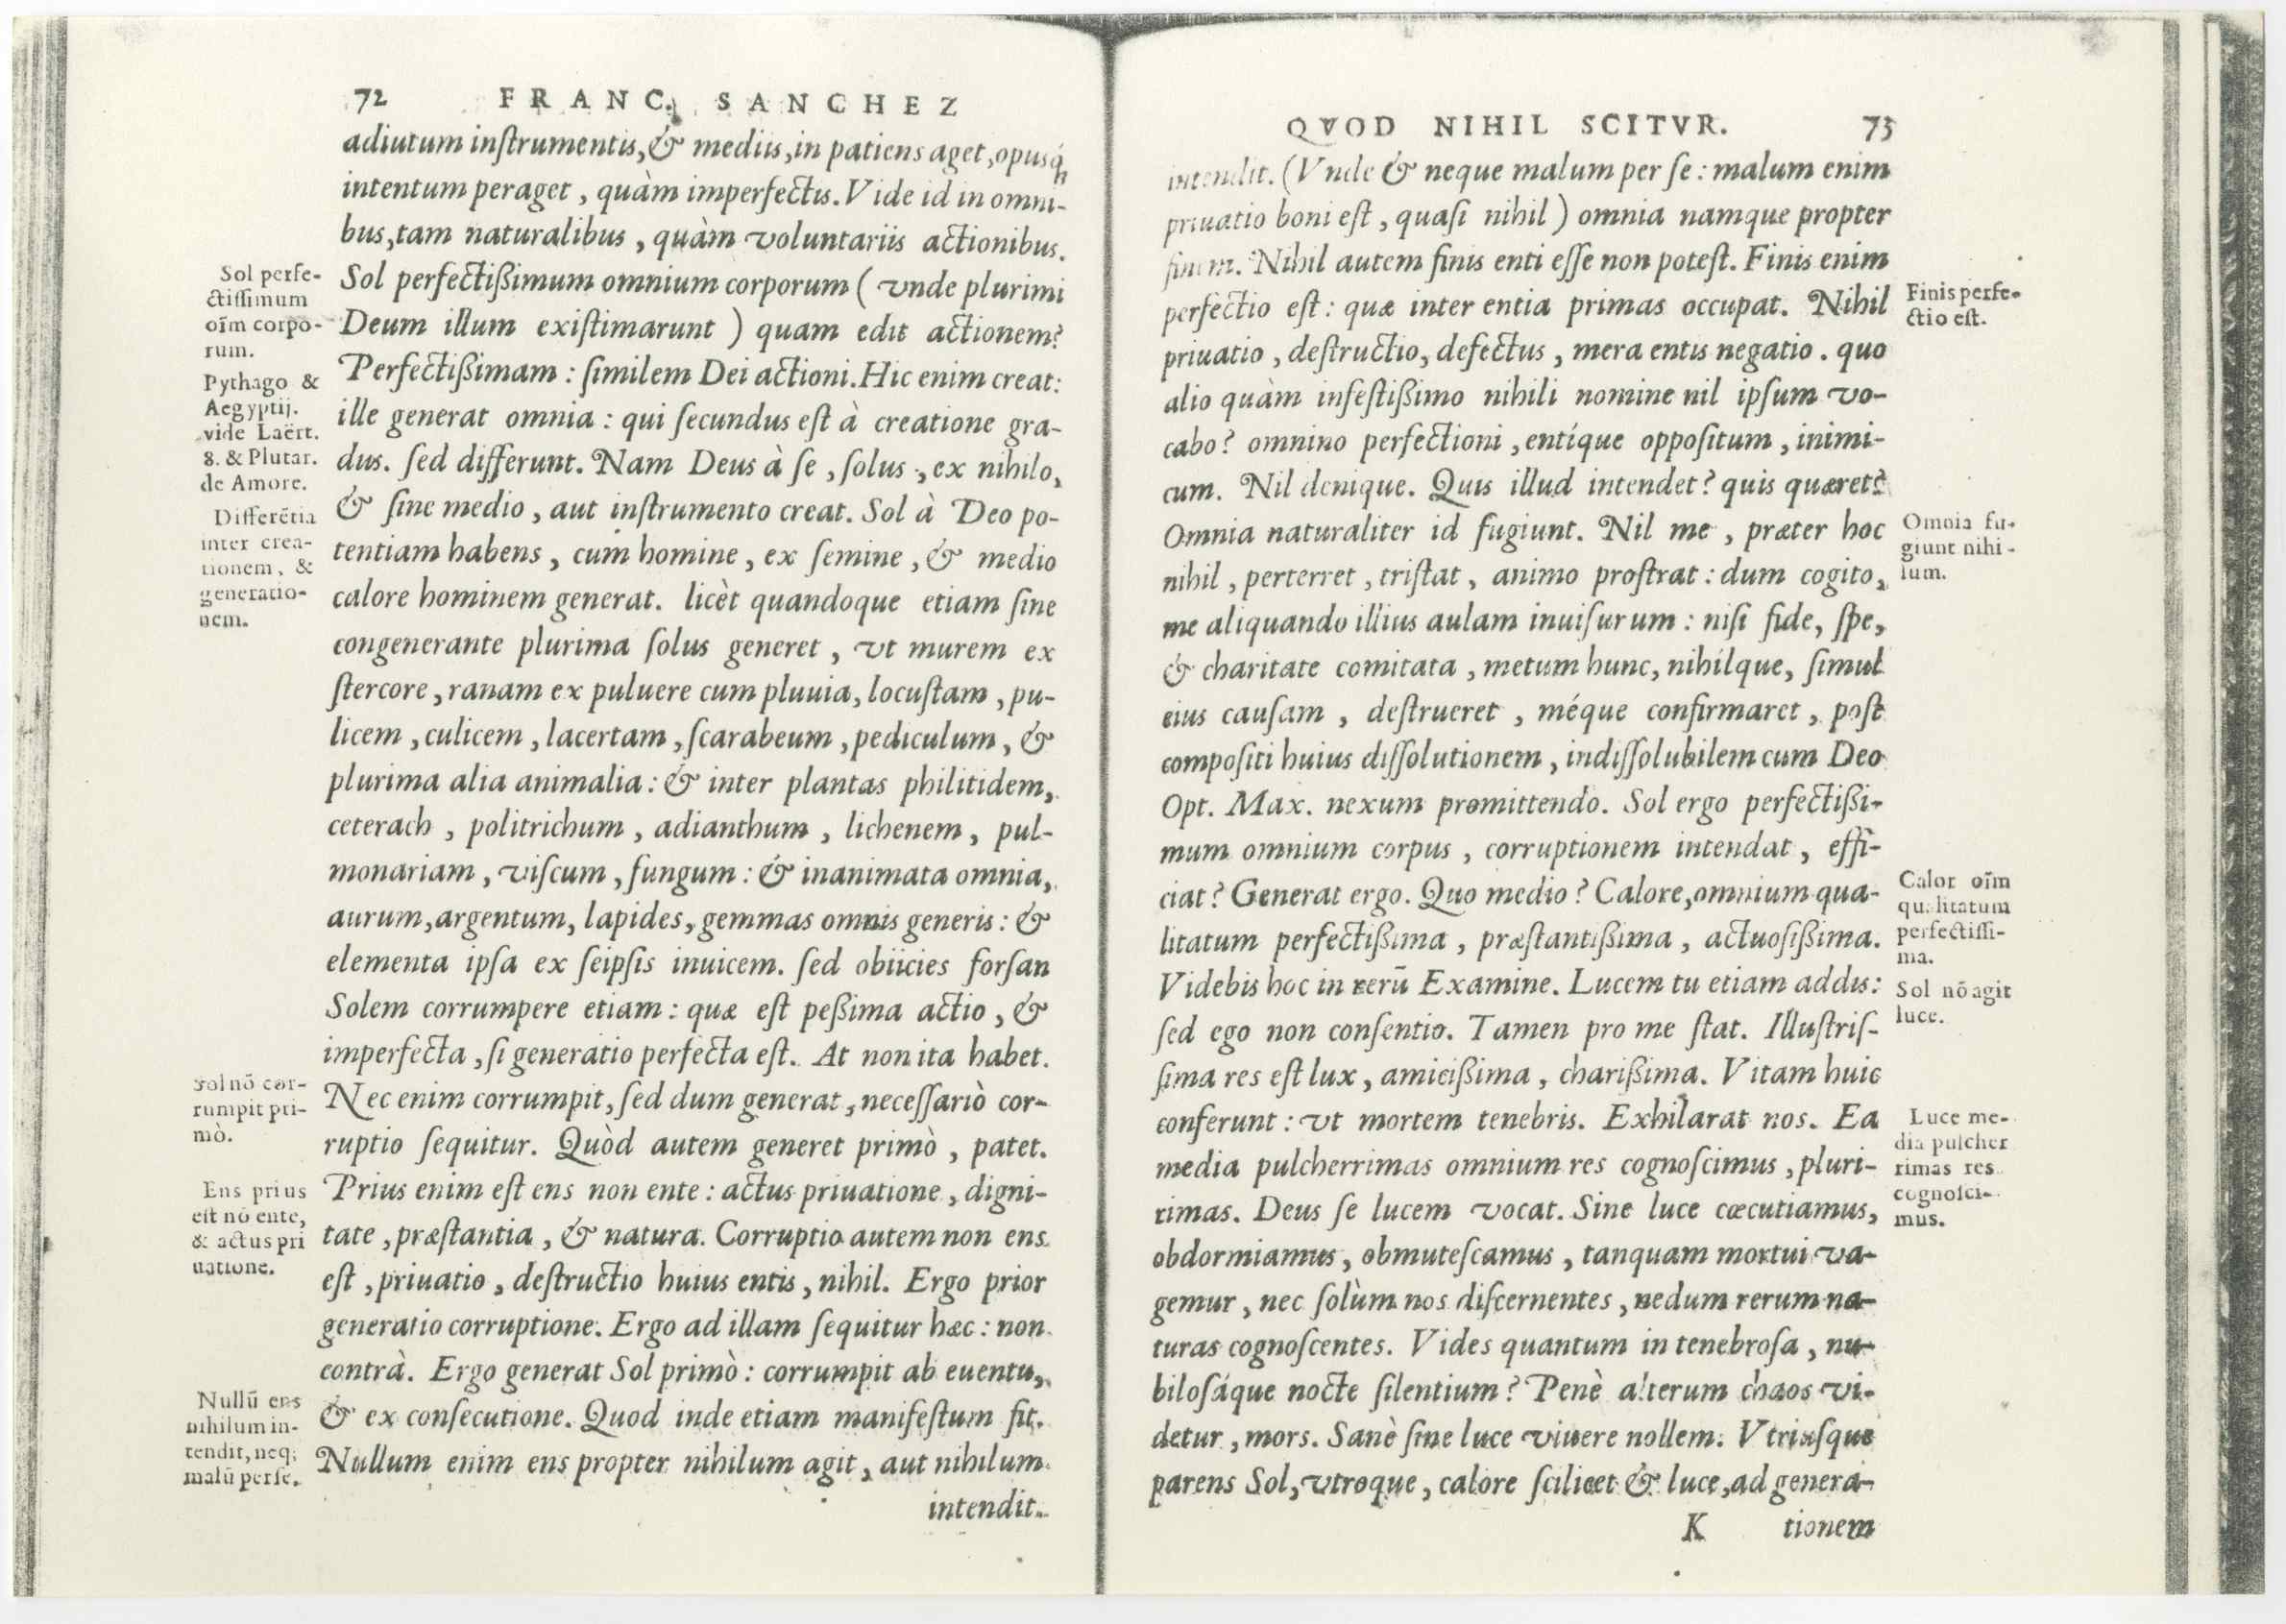 72 FRANC. SANCHEZ
adiutum inſtrumentis, & mediis, in patiens aget, opusq́;
intentum peraget, quàm imperfectis. Vide id in omni-
bus, tam naturalibus, quàm voluntariis actionibus.
Sol perfectißimum omnium corporum ( vnde plurimi
Deum illum exiſtimarunt ) quam edit actionem?
Perfectißimam : ſimilem Dei actioni. Hic enim creat:
ille generat omnia : qui ſecundus eſt à creatione gra-
dus. ſed differunt. Nam Deus à ſe, ſolus, ex nihilo,
& ſine medio, aut inſtrumento creat. Sol à Deo po-
tentiam habens, cum homine, ex ſemine, & medio
calore hominem generat. licèt quandoque etiam ſine
congenerante plurima ſolus generet, vt murem ex
ſtercore, ranam ex puluere cum pluuia, locuſtam, pu-
licem, culicem, lacertam, ſcarabeum, pediculum, &
plurima alia animalia : & inter plantas philitidem,
ceterach, politrichum, adianthum, lichenem, pul-
monariam, viſcum, fungum : & inanimata omnia,
aurum, argentum, lapides, gemmas omnis generis : &
elementa ipſa ex ſeipſis inuicem. ſed obiicies forſan
Solem corrumpere etiam : quæ eſt peßima actio, &
imperfecta, ſi generatio perfecta eſt. At non ita habet.
Nec enim corrumpit, ſed dum generat, neceſſariò cor-
ruptio ſequitur. Quòd autem generet primò, patet.
Prius enim eſt ens non ente : actus priuatione, digni-
tate, præſtantia, & natura. Corruptio autem non ens
eſt, priuatio, deſtructio huius entis, nihil. Ergo prior
generatio corruptione. Ergo ad illam ſequitur hæc : non
contrà. Ergo generat Sol primò : corrumpit ab euentu,
& ex conſecutione. Quod inde etiam manifeſtum fit.
Nullum enim ens propter nihilum agit, aut nihilum
intendit.
Sol perfe-
ctiſſimum
oīm corpo-
rum.
Pythago &
Aegyptij.
vide Laërt.
8. & Plutar.
de Amore.
Differẽtia
inter crea-
tionem, &
generatio-
nem.
Sol nõ cor-
rumpit pri-
mò.
Ens prius
eſt nõ ente,
& actus pri
uatione.
Nullū ens
nihilum in-
tendit, neq;
malū per ſe.
QVOD NIHIL SCITVR. 73
intendit. (Vnde & neque malum per ſe : malum enim
priuatio boni eſt, quaſi nihil ) omnia namque propter
finem. Nihil autem finis enti eſſe non poteſt. Finis enim
perfectio eſt : quæ inter entia primas occupat. Nihil
priuatio, deſtructio, defectus, mera entis negatio. quo
alio quàm infeſtißimo nihili nomine nil ipſum vo-
cabo? omnino perfectioni, entíque oppoſitum, inimi-
cum. Nil denique. Quis illud intendet? quis quæret?
Omnia naturaliter id fugiunt. Nil me, præter hoc
nihil, perterret, triſtat, animo proſtrat : dum cogito,
me aliquando illius aulam inuiſurum : niſi fide, ſpe,
& charitate comitata, metum hunc, nihílque, ſimul
eius cauſam, deſtrueret, méque confirmaret, poſt
compoſiti huius diſſolutionem, indiſſolubilem cum Deo
Opt. Max. nexum promittendo. Sol ergo perfectißi-
mum omnium corpus, corruptionem intendat, effi-
ciat? Generat ergo. Quo medio? Calore, omnium qua-
litatum perfectißima, præſtantißima, actuoſißima.
Videbis hoc in rerū Examine. Lucem tu etiam addis:
ſed ego non conſentio. Tamen pro me ſtat. Illuſtriſ-
ſima res eſt lux, amicißima, charißima. Vitam huic
conferunt : vt mortem tenebris. Exhilarat nos. Ea
media pulcherrimas omnium res cognoſcimus, pluri-
rimas. Deus ſe lucem vocat. Sine luce cœcutiamus,
obdormiamus, obmuteſcamus, tanquam mortui va-
gemur, nec ſolùm nos diſcernentes, nedum rerum na-
turas cognoſcentes. Vides quantum in tenebroſa, nu-
biloſáque nocte ſilentium? Penè alterum chaos vi-
detur, mors. Sanè ſine luce viuere nollem. Vtriuſque
parens Sol, vtroque, calore ſcilicet & luce, ad genera-
K tionem
Finis perfe-
ctio eſt.
Omnia fu-
giunt nihi-
lum.
Calor oīm
qualitatum
perfectiſſi-
ma.
Sol nõ agit
luce.
Luce me-
dia pulcher
rimas res
cognoſci-
mus.